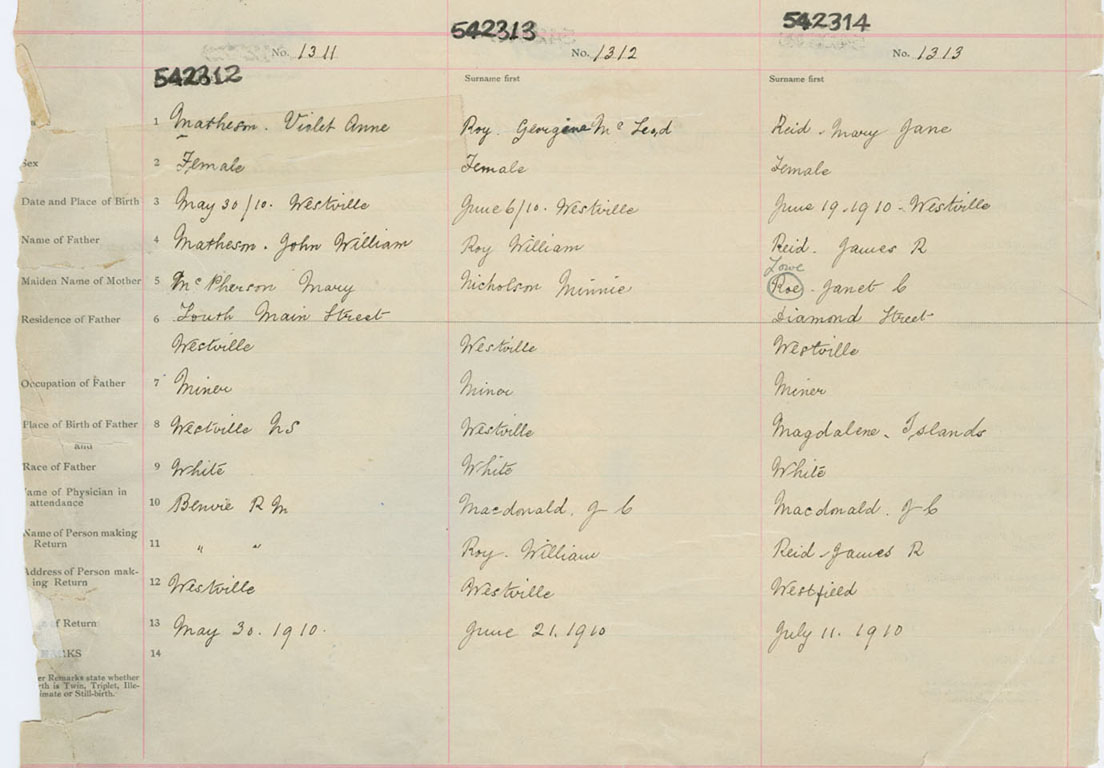 542313
542314
No. 1311
No. 1312
No. 1313
542312
Surname first
Surname first
1 Matheson. Violet Anne
Roy. Georgene Mc Leod
Reid. Mary Jane
Sex
2 Female
Female
Female
Date and Place of Birth
3 May 30/10. Westville
June 6/10. Westville
June 19.1910 - Westville
Name of Father
4 Matheson. John William
Roy William
Reid. James R
Lowe
Maiden Name of Mother
5 McPherson Mary
Nicholson Minnie
Roe. Janet C
Residence of Father
6 South Main Street
Diamond Street
Westville
Westville
Westville
Occupation of Father
7 Miner
Miner
Miner
Place of Birth of Father
8 Westville NS
Westville
Magdalene. Islands
and
Race of Father
9 White
White
White
ame of Physician in
attendance
10 Benvie R M
Macdonald. J C
Macdonald. J C
Name of Person making
Return
11 " "
Roy. William
Reid James R
Address of Person mak-
ing Return
12 Westville
Westville
Westfield
of Return
13 May 30. 1910.
June 21. 1910
July 11. 1910
RKS
14
er Remarks state whether
rth is Twin, Triplet, Ille-
imate or Still-birth.